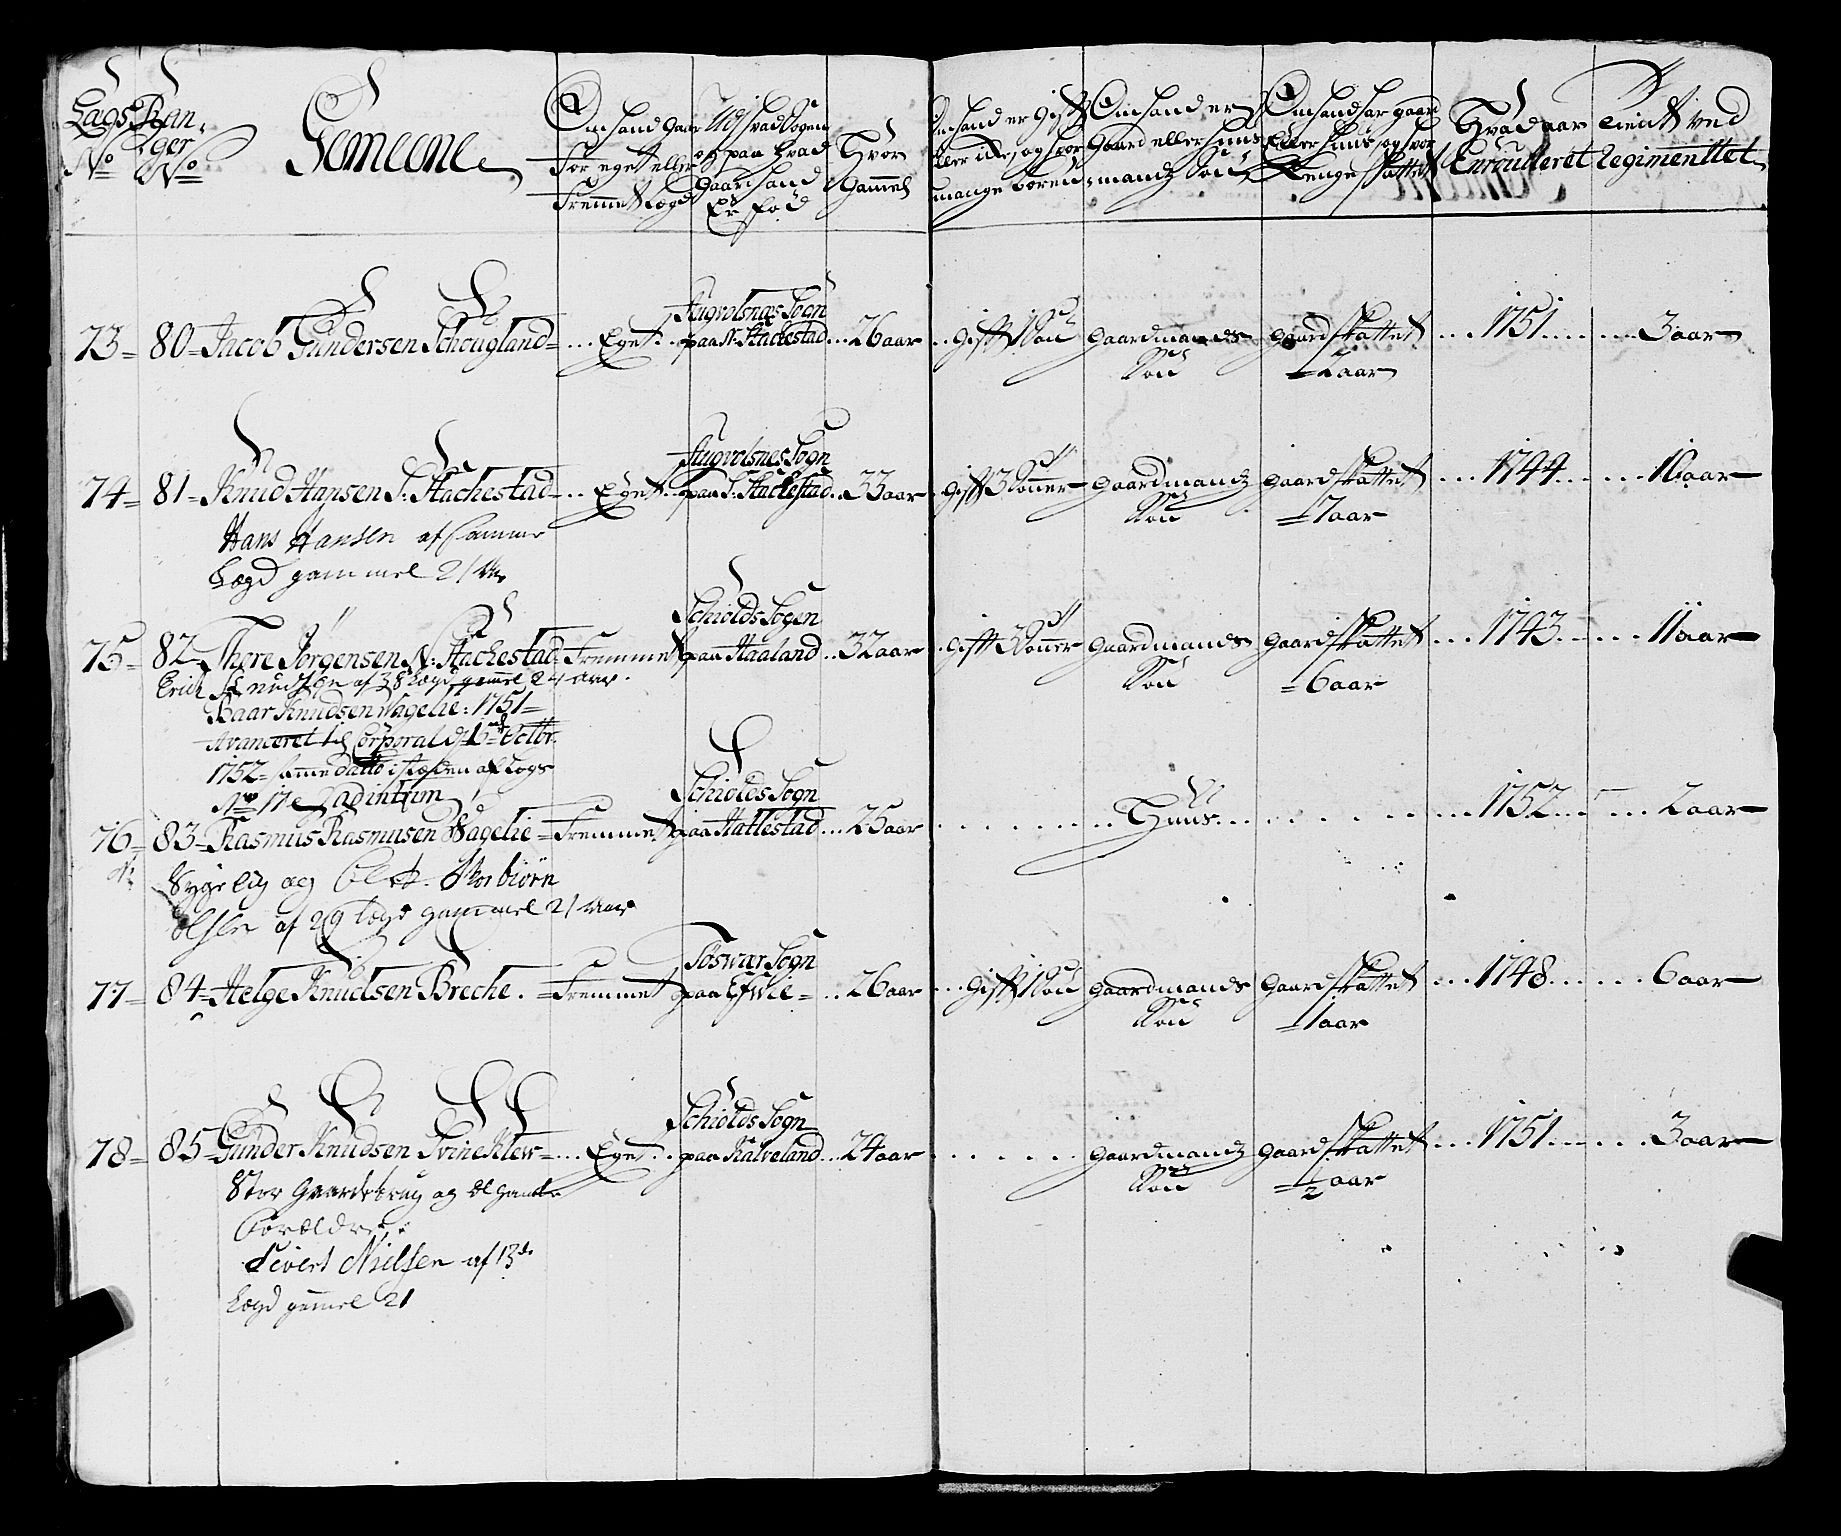 Lags No
Ran-ger No
Gemeene
Om hand Gaar For eget eller Fremmet Lægd
Udj hvad Sogen og paa hvad Gaard hand Er fød
Hvor Gammel
Om hand er gift eller ikke, og hvor mange børen
Om hand er Gaard eller Huus mands Søn
Om hand har gaard Eller Huus og hvor Lenge skattet
Hvad aar Enroulleret
tient ved Regimenttet
73 = 80 = Jacob Gundersen Schougland = ... Eget ... Augvolsnæs Sogn paa N: Hachestad ... 26 aar ... gift 1 Søn gaardmands Søn gaard skattet = 2 aar ... 1751 ... 3 aar
74 = 81 = Knud Hansen S: Hachestad ... Eget ... Augvolsnes Sogn paa S: Hachestad ... 33 aar ... gift 3 Sønner gaardmands Søn gaard skattet = 7 aar ... 1744 ... 10 aar
Hans Hansen af samme
Lægd gammel 21 aar
75 = 82 = Thore Jørgensen N: Hachestad = Fremmet Schiolds Sogen paa Haaland ... 32 aar ... gift 3 Sønner gaardmands Søn gaard skattet = 6 aar ... 1743 ... 11 aar
Erich Knudsen af 38 Lægd gamel 24 aar.
Baar Knudsen Wagelie: 1751 =
Avanceret til Corporal d: 1 Octbr.
1752 = samme datto i stæden af Logs
No 17
76 = 83 = Rasmus Rasmusen Wagelie = Fremmet Schiolds Sogn paa Hatlestad ... 25 aar ... Huus ... 1752 ... 2 aar
Sygelig og Torbiørn
Olsen af 29 lægd gammel 21 aar
77 = 84 = Helge Knudsen Breche. = Fremmet Føswær Sogn paa Efwie = ... 26 aar ... gift 1 Søn gaardmands Søn gaard skattet = 1 aar ... 1748 ... 6 aar
78 = 85 = Gunder Knudsen Svineklew = ... Eget ... Schiolds Sogn paa Kalveland ... 24 aar ... gaardmands Søn gaard skattet = 1/2 aar ... 1751 ... 3 aar
Stor Gaardsbrug og gamle
Forældre;
Sivert Nielsen af 13de
Lægd gammel 21